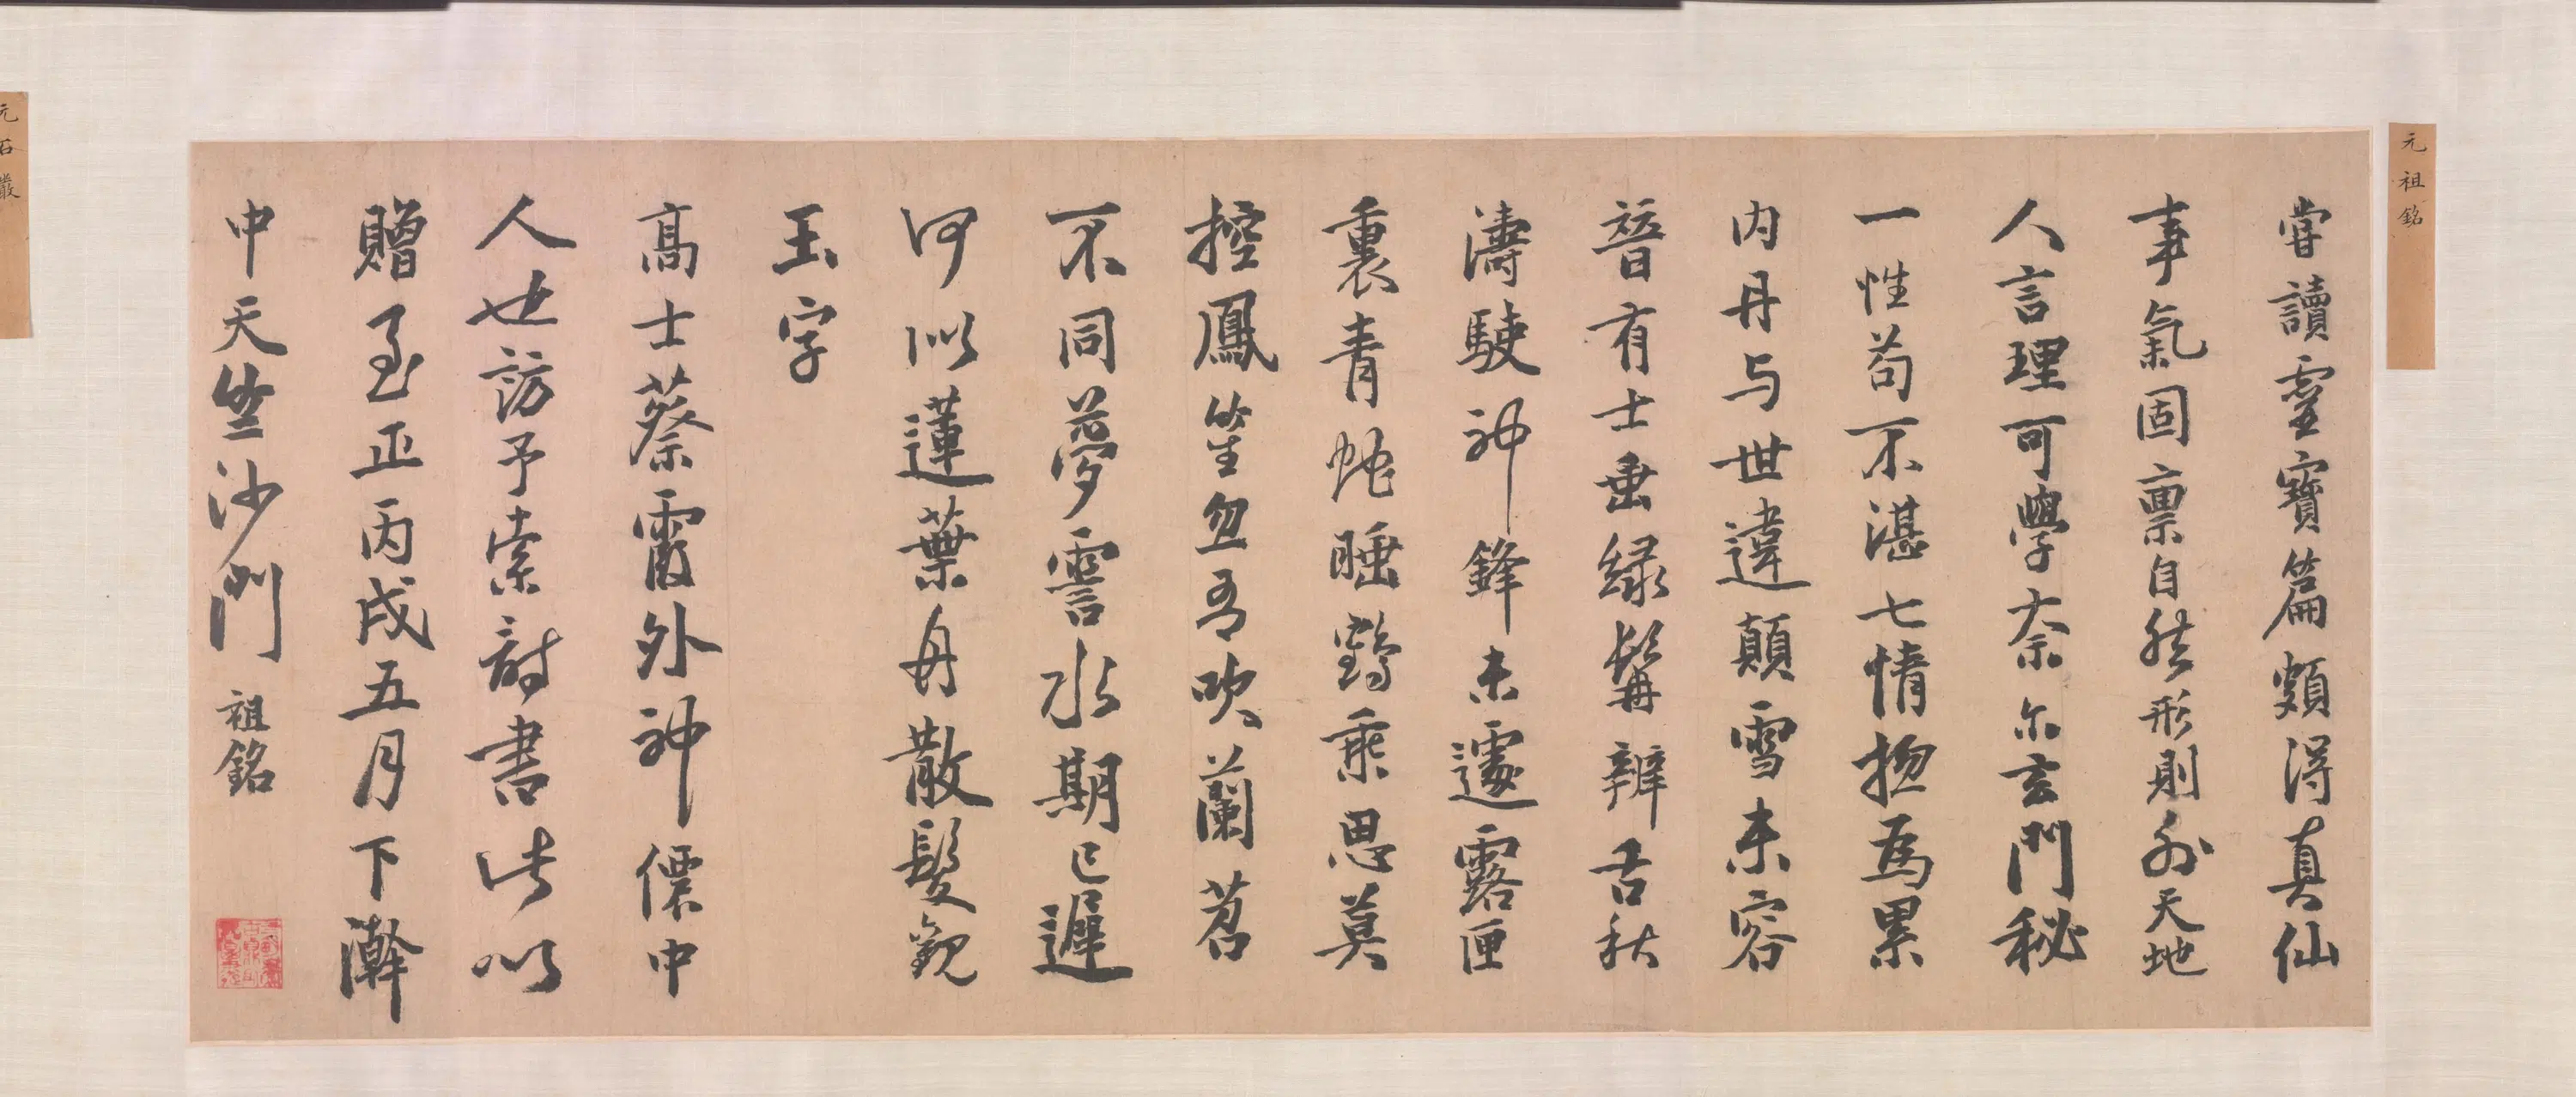 元祖銘
甞讀靈寶篇頗得真仙
事氣固禀自然形則外天地
人言理可學奈尓玄門秘
一性苟不湛七情揔爲累
内丹与世違顛雪未容
簪有士垂緑髯辨舌秋
濤駛神鋒未遽露匣
裏青蛇睡鶴乘思莫
控鳳笙忽吾吹蘭苕
不同夢雲水期已遲
何似蓮葉舟散髮觀
玉字
髙士蔡霞外神儒中
人也訪予索詩書此以
贈至正丙戌五月下澣
中天竺沙門 祖銘
元石巖